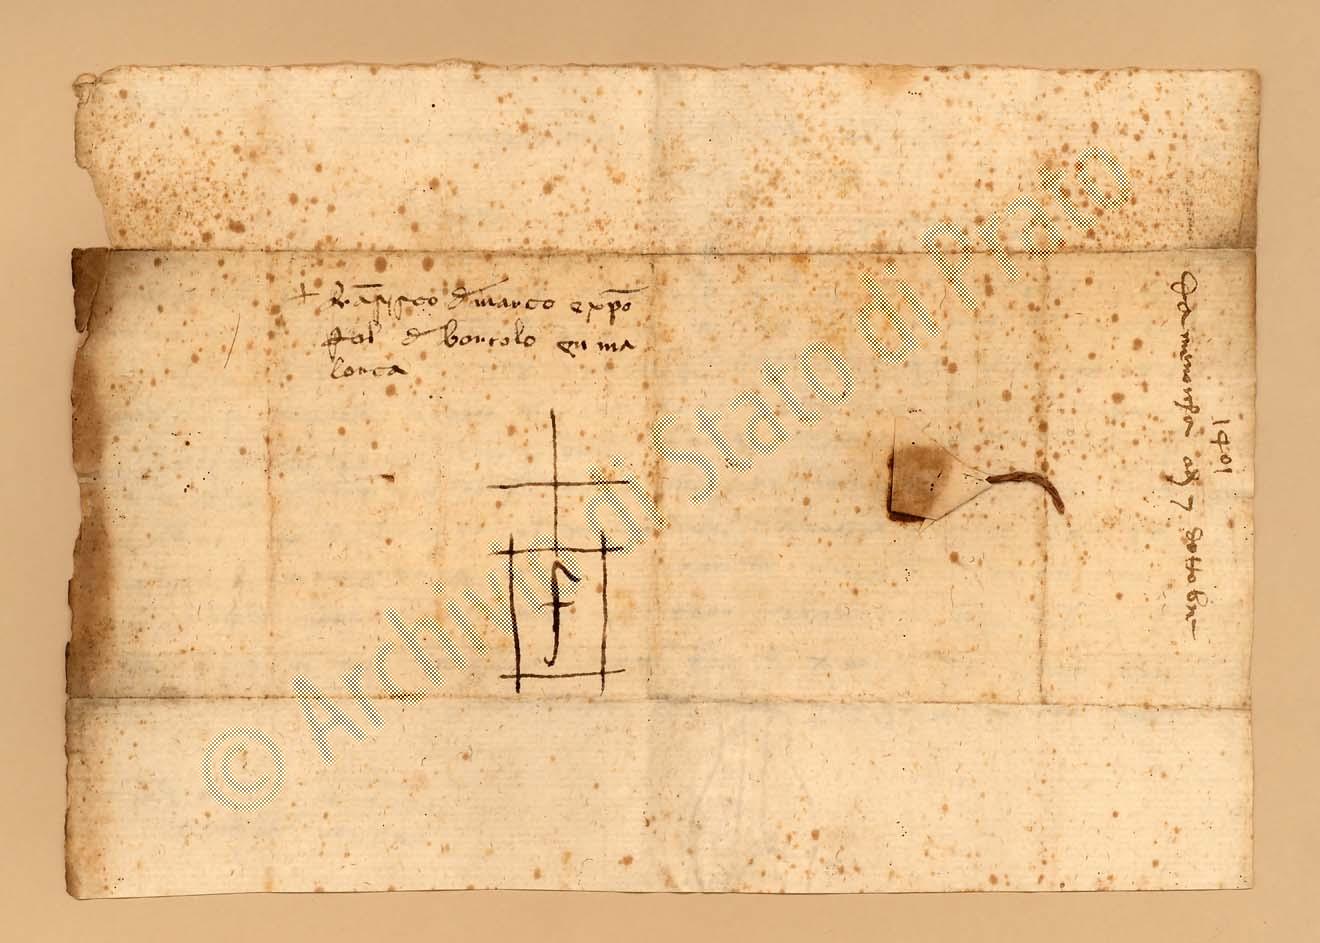 + Franssisco de Marco e xpo
fal de bortolo en ma
lorca
1401
Da minoricha adj 7 dottobre
© Archivio di Stato di Prato